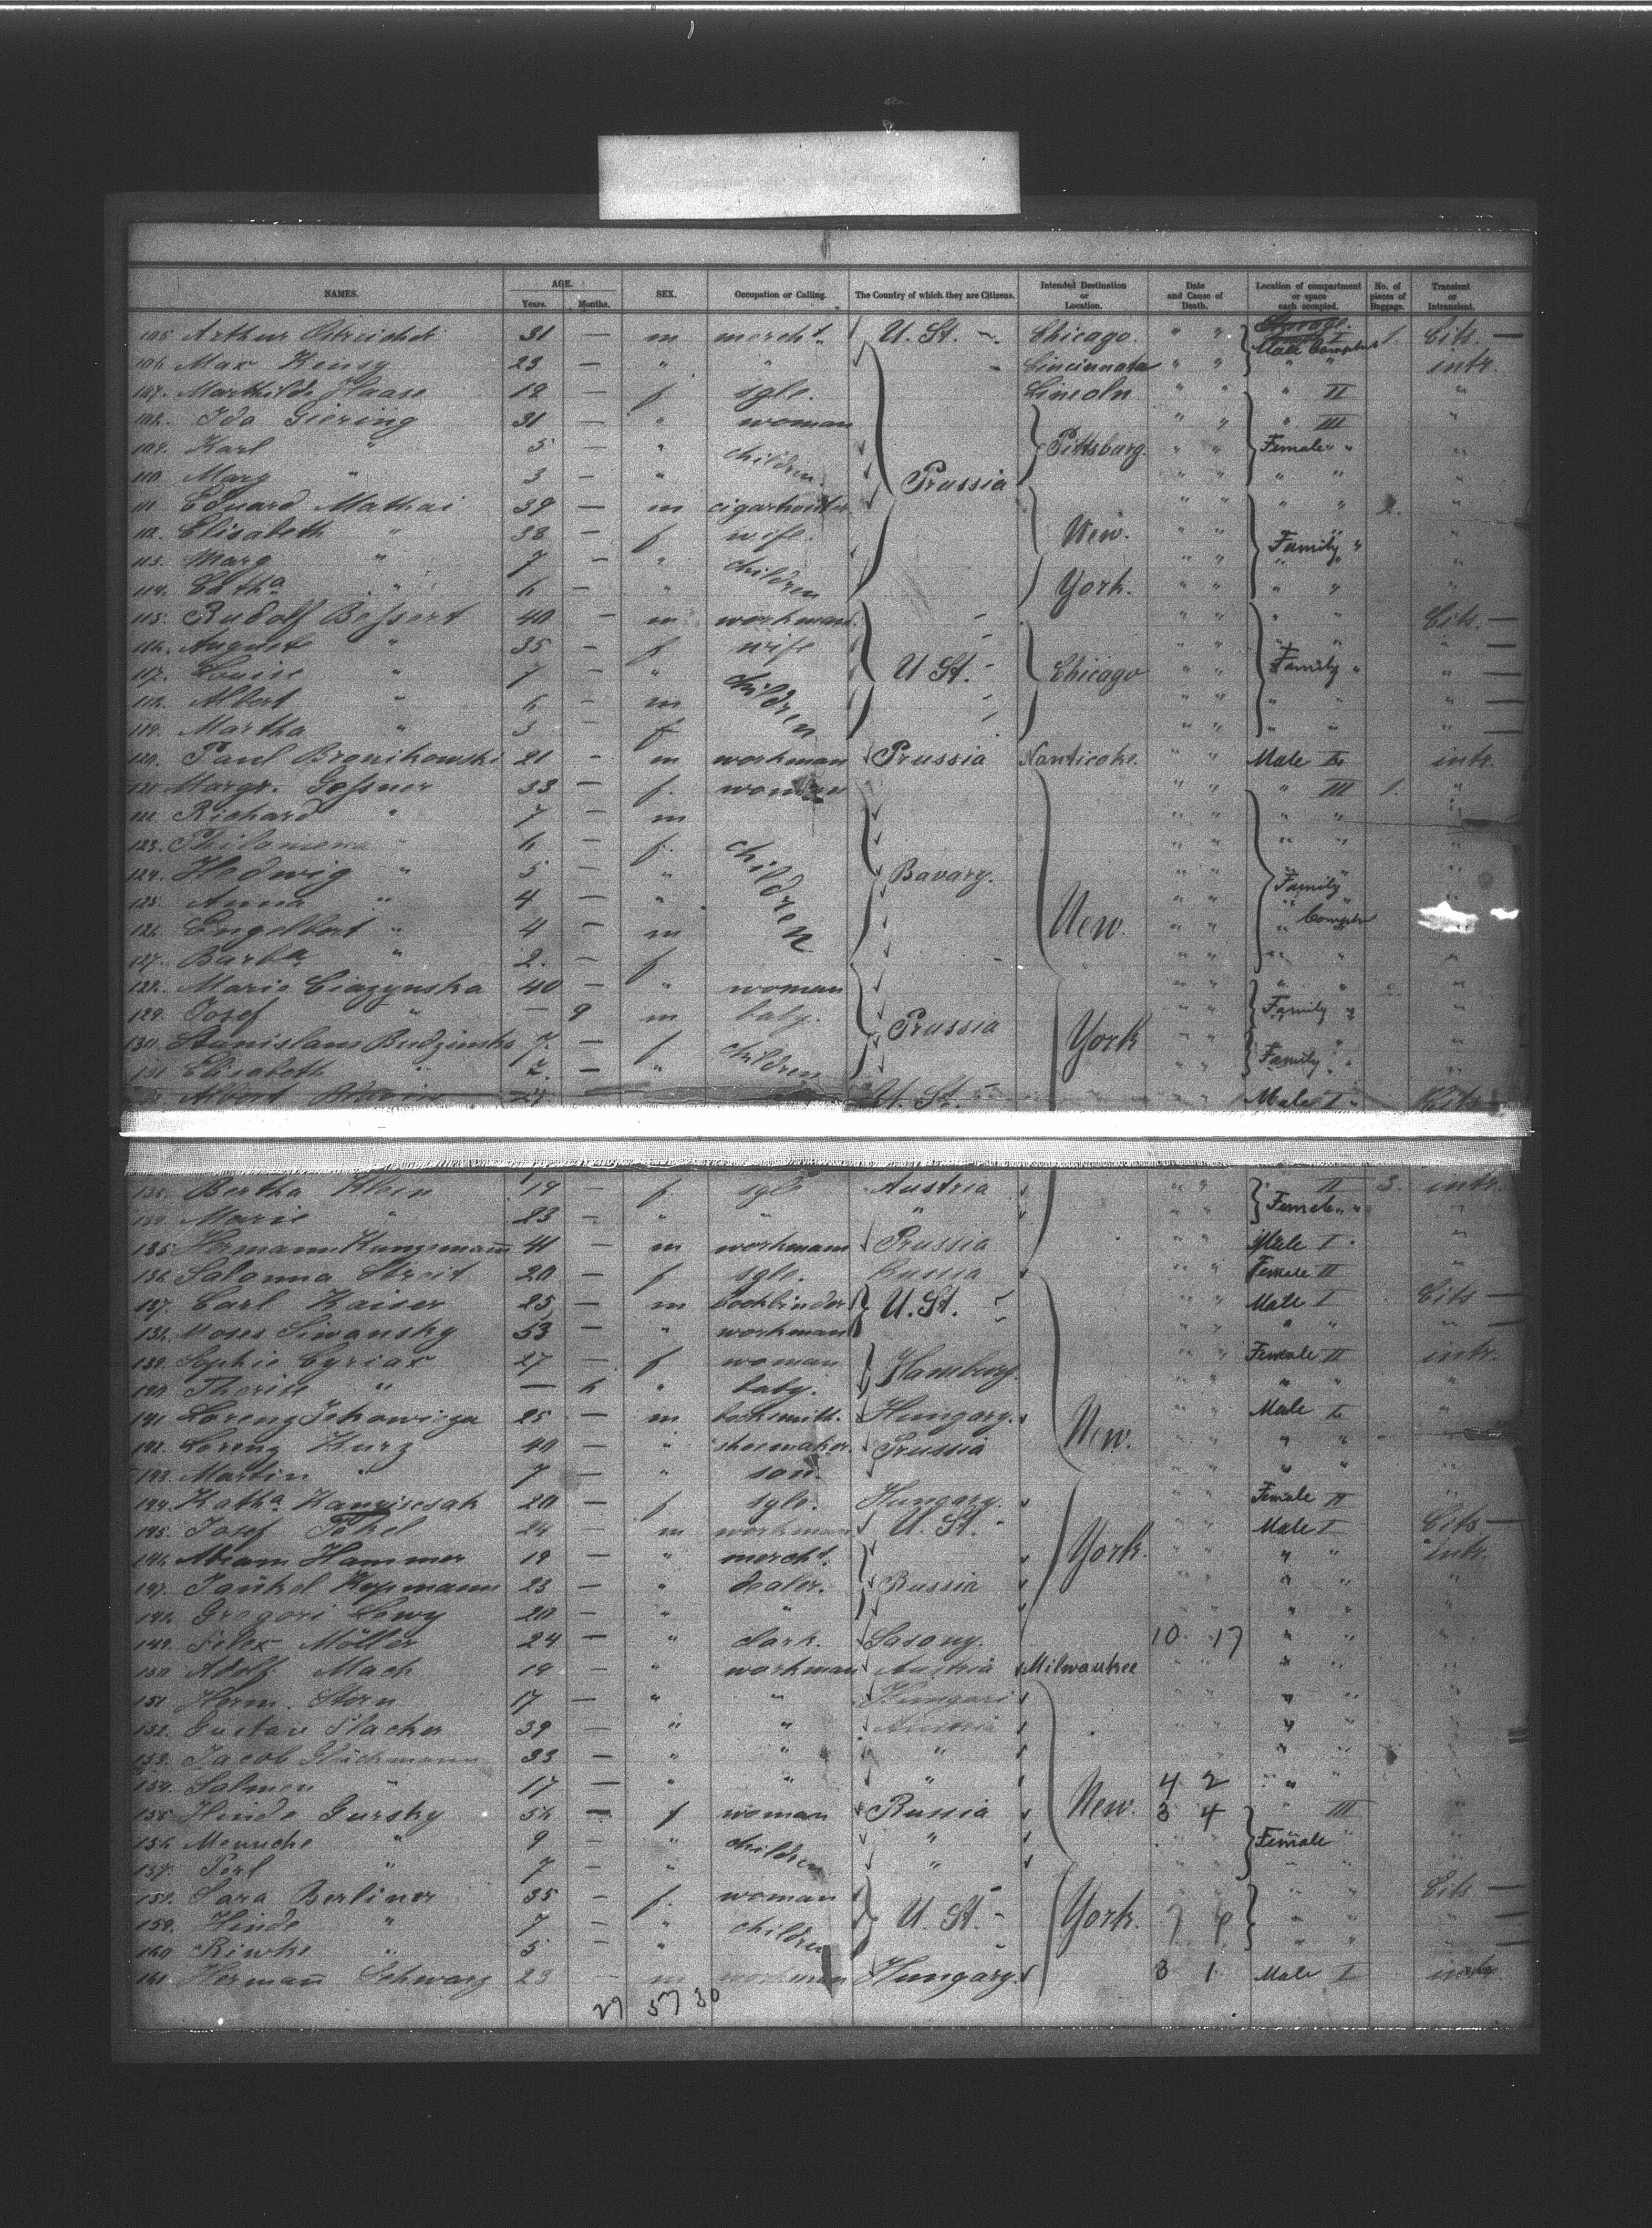 NAMES. AGE. Years. Months. SEX. Occupation or Calling. The Country of which they are Citizens. Intended Destination or Location. Date and Cause of Death. Location of compartment or space each occupied. No. of pieces of Baggage. Transient or Intransient.
105. Arthur 31 — m mercht. U. St. — Chicago. " " Male 1. Cits. —
106. Max 23 — " " Cincinnata " " " " intr.
107. Marthilde Haase 19 — f sgle. Lincoln " " " II "
108. Ida Giering 31 — " woman " " " III
109. Karl " 5 — " children Pittsburg. " " Female " " "
110. Marg " 3 — " Prussia " " " " "
111. Eduard Mathai 39 — m " " " " 2. "
112. Elisabeth " 38 — f wife. New. " " "
113. Marg " 7 — " children " " Family " "
114. Cath.a " 6 — " York. " " " " "
115. Rudolf Bessert 40 — m workman. " " " " Cits. —
116. August " 35 — f wife " " " —
117. Louise " 7 — " children U St. — Chicago " " Family " " —
118. Albert " 6 — m " " " " " —
119. Martha " 3 — f " " " " " —
120. Paul Bronikowski 21 — m workman Prussia Nanticoke. " " Male I. intr.
121. Margr. Gessner 33 — f. woman " " " III 1. "
122. Richard " 7 — m " " " "
123. Philomena " 6 — f. children " " " " "
124. Hedwig " 5 — " Bavary. " " Family " "
125. Anna " 4 — " " "
126. Engelbert " 4 — m New. " " " Comptm
127. Barba " 2. — f " " " " "
128. Marie Ciazynska 40 — " woman " " " " "
129. Josef " — 9 m baby. Prussia " " Family " "
130. Stanislaus Budzinska 7. — f children York " " "
131. Elisabeth " 2. — " " " Family " "
Albert 24. U. St. — " " Male I " Cits
Bertha Klein 19 — f. sgle Austria " " II 3. intr.
Marie " 23 — " " " " " Female " " "
135. Hermann Kungemann 41 — m workman Prussia " " Male I "
136. Salomna Streit 20 — f sgle. Russia " " Female II "
137. Carl Kaiser 25 — m bookbinder U. St. — " " Male I Cits —
138. Moses Siwansky 53 — " workman " " " " " —
139. Sophie Cyriax 27 — f woman Hamburg. " " Female II intr.
140. Therese " — 6 " baby. " " " " "
141. Lorenz 25 — m Hungary. " " Male I "
142. Lorenz Kurz 40 — " shoemaker Prussia New. " " " " "
143. Martin " 7 — " son " " " " "
144. Katha 20 — f sgle. Hungary. " " Female II "
145. Josef 24 — m workman U. St. — " " Male I Cits —
146. Abram Hammer 19 — " mercht. York. " " " " Intr.
147. 23 — " dealer. Russia " " " " "
148. Gregori Lewy 20 — " " " " " " "
149. Felex Möller 24 — " clark. Saxony. 10 17 " " "
150. Adolf Mach 19 — " workman Austria Milwaukee " " " " "
151. Herm. Stern 17 — " " Hungari " " " " "
152. Gustav 39 — " " Austria " " " " "
153. Jacob Glückmann 33 — " " " " " "
154. Salmen " 17 — " " " 4 2 " " "
155. Hinde Gursky 56 — f woman Russia New. 3 4 " III "
156. Menuche " 9 — " children " Female " "
157. Perl " 7 — " " " " " " "
158. Sara Berliner 35 — f. woman " " " " Cits —
159. Hinde " 7 — " children U. St. — York. 7 " " " —
160 Riwke " 5 — " " " " —
161. Hermann Schwarz 23 — m workman Hungary. 3 1 Male I intr.
27 57 30